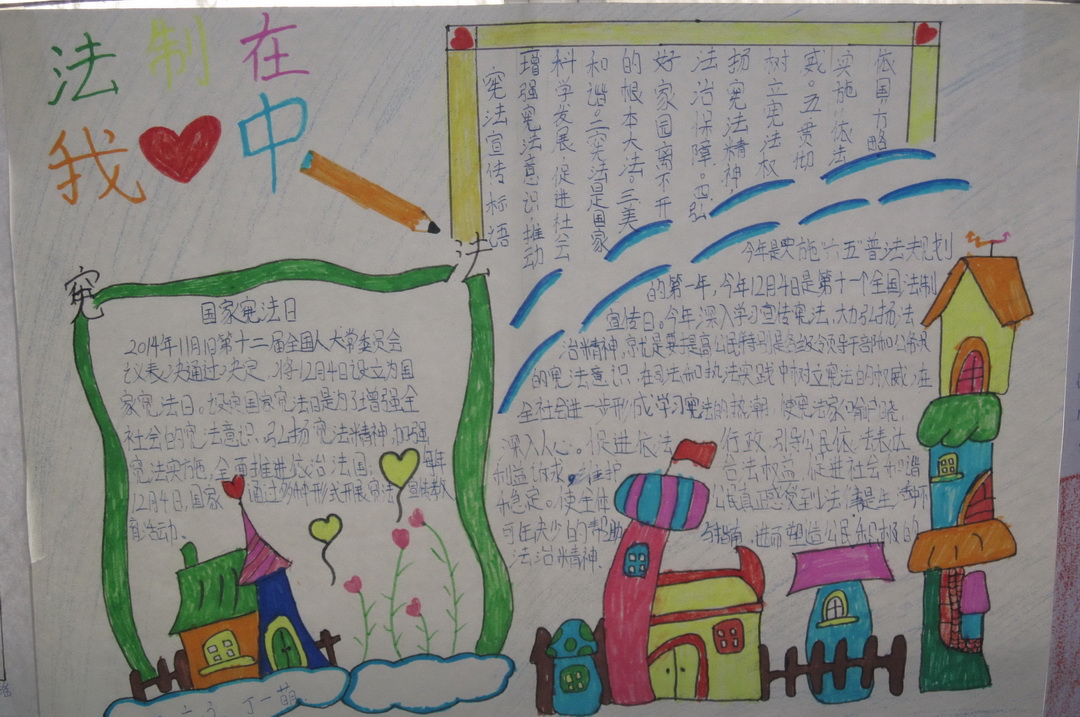 法制在
我中
宪法宣传标语
增强宪法意识,推动
科学发展,促进社会
和谐。二宪法是国家
的根本大法。三美
好家园离不开
法治保障。四弘
扬宪法精神,
树立宪法权
威。五贯彻
实施依法
依国方略
宪法
国家宪法日
2014年11月1日第十二届全国人大常委员会
议表决通过决定,将12月4日设立为国
家宪法日。设立国家宪法日是为了增强全
社会的宪法意识,弘扬宪法精神,加强
宪法实施,全面推进依治法国。每年
12月4日,国家通过多种形式开展宪法宣传教
育活动。
今年是实施“六五”普法规划
的第一年,今年12月4日是第十一个全国法制
宣传日。今年深入学习宣传宪法,大力弘扬法
治精神,就是要提高公民特别是各级领导干部和公务员
的宪法意识,在司法和执法实践中树立宪法的权威,在
全社会进一步形成学习宪法的热潮,使宪法家喻户晓,
深入人心。促进依法行政,引导公民依法表达
利益诉求,维护合法权益,促进社会和谐
稳定。使全体公民真正感受到法律是生活中不
可缺少的帮助与指南,进而塑造公民积极的
法治精神。
丁一萌